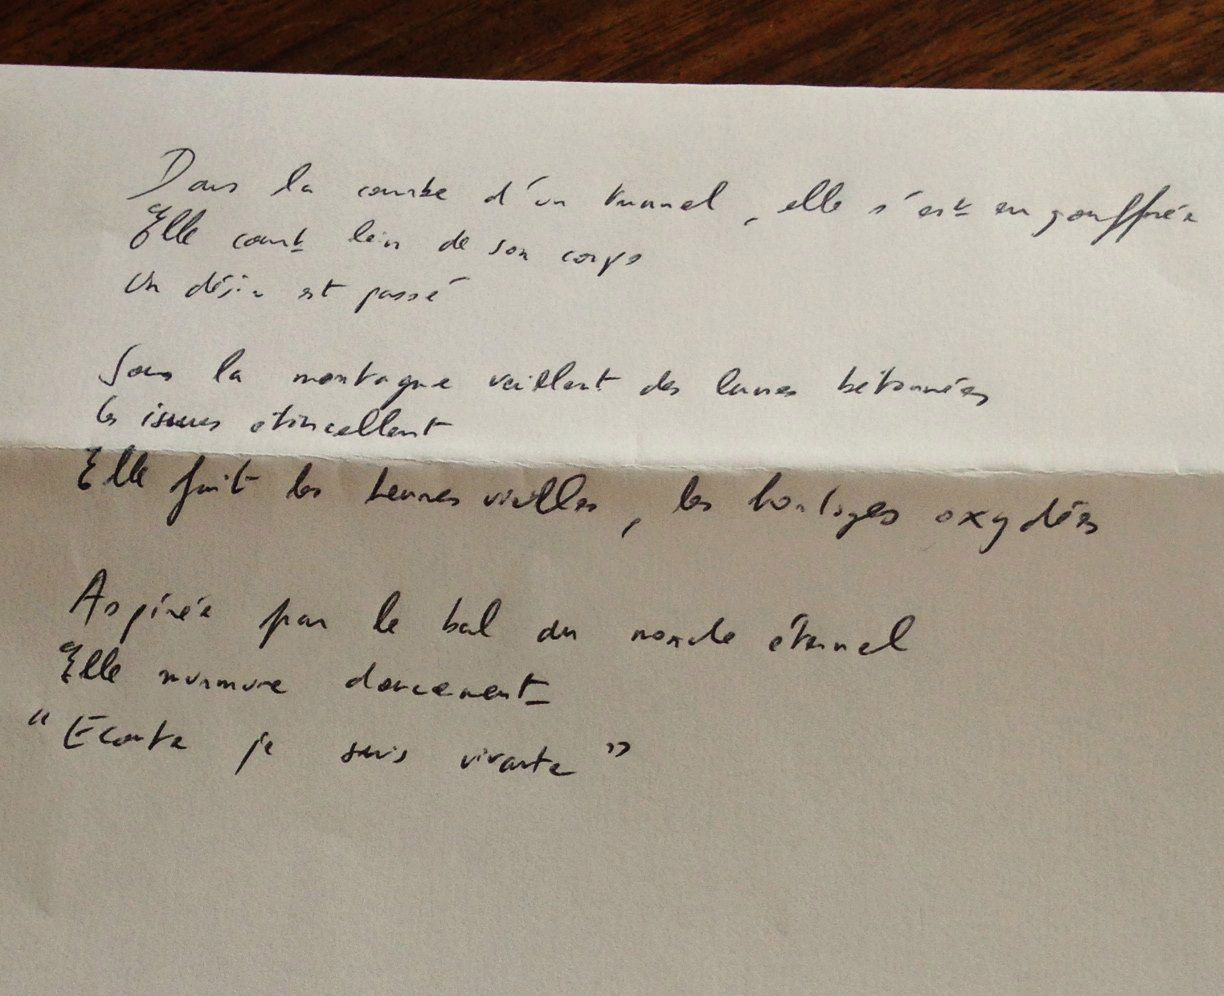 Dans la courbe d'un tunnel, elle s'est engouffrée
Elle court loin de son corps
Un désir est passé
Sous la montagne veillent des lunes bétonnées
les issues étincellent
Elle fuit les heures vieilles, les horloges oxydées
Aspirée par le bal du monde éternel
Elle murmure doucement
"Ecoute je suis vivante"